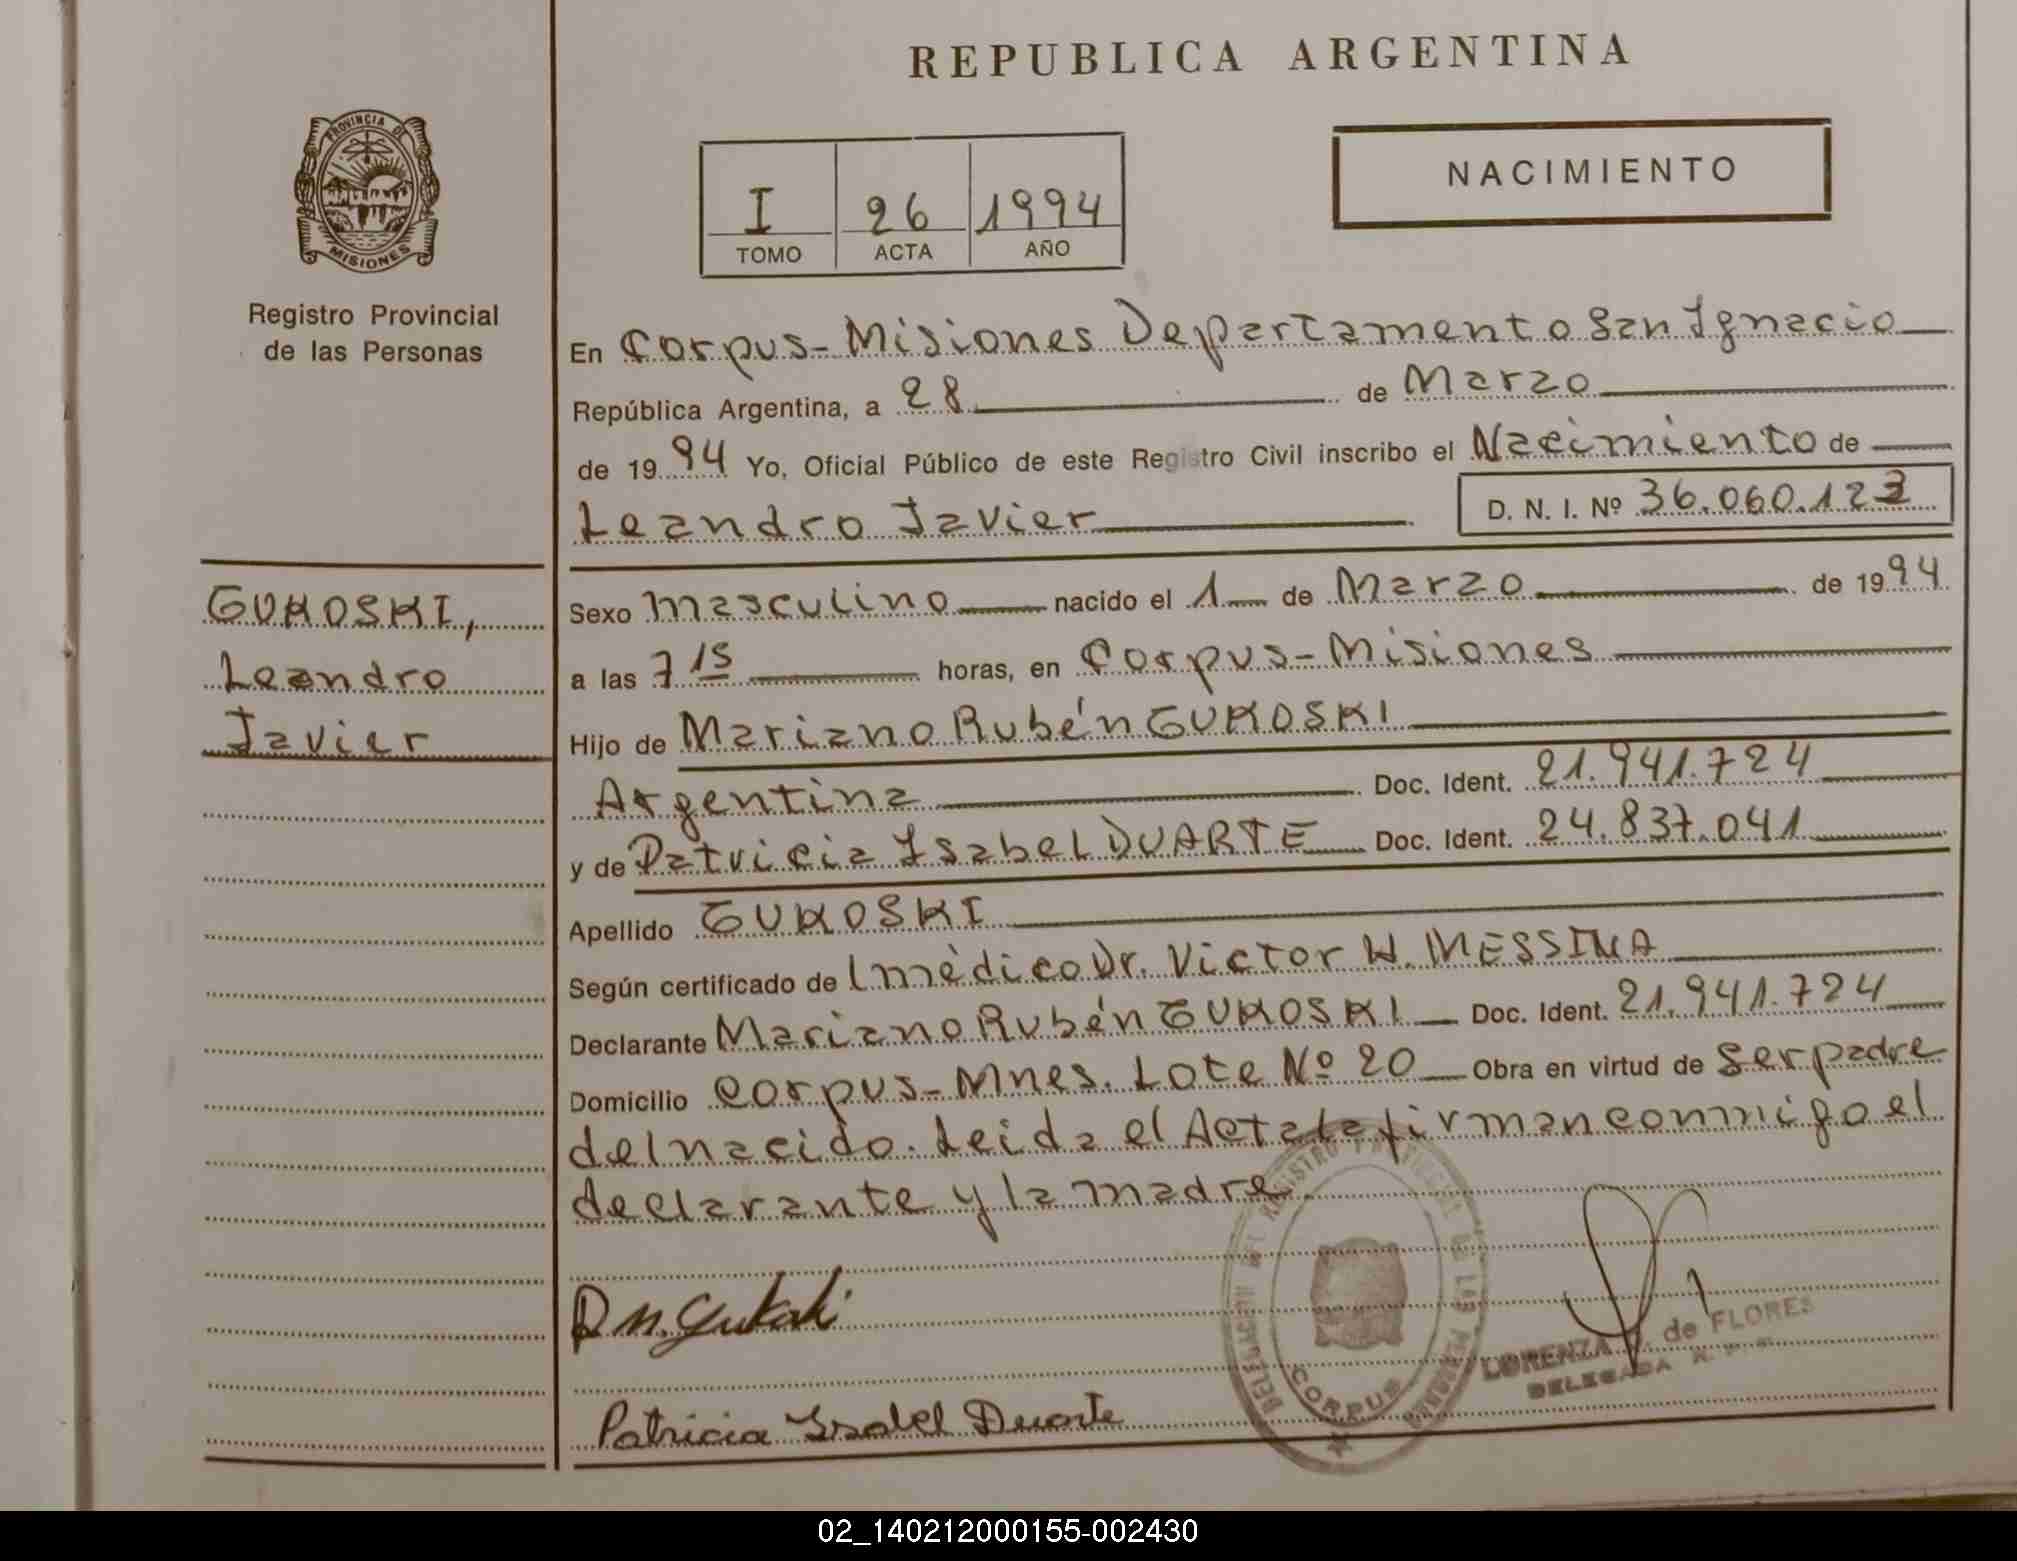 REPUBLICA ARGENTINA
PROVINCIA DE
MISIONES
Registro Provincial
de las Personas
I 26 1994
TOMO ACTA AÑO
NACIMIENTO
En Corpus-Misiones Departamento San Ignacio
República Argentina, a 28 de Marzo
de 1994 Yo, Oficial Público de este Registro Civil inscribo el Nacimiento de
Leandro Javier D. N. I. Nº 36.060.123
GUKOSKI,
Leandro
Javier
Sexo masculino nacido el 1 de Marzo de 1994
a las 7 15 horas, en Corpus-Misiones
Hijo de Mariano Rubén GUKOSKI
Argentina Doc. Ident. 21.941.724
y de Patricia Isabel DUARTE Doc. Ident. 24.837.041
Apellido GUKOSKI
Según certificado del médico Dr. Victor W. MESSINA
Declarante Mariano Rubén GUKOSKI Doc. Ident. 21.941.724
Domicilio Corpus-Mnes. Lote Nº 20 Obra en virtud de ser padre
del nacido. Leida el Acta la firman conmigo el
declarante y la madre.
DELEGACION DEL REGISTRO PROVINCIAL DE LAS PERSONAS
CORPUS
LORENZA de FLORES
DELEGADA
Patricia Isabel Duarte
02_140212000155-002430